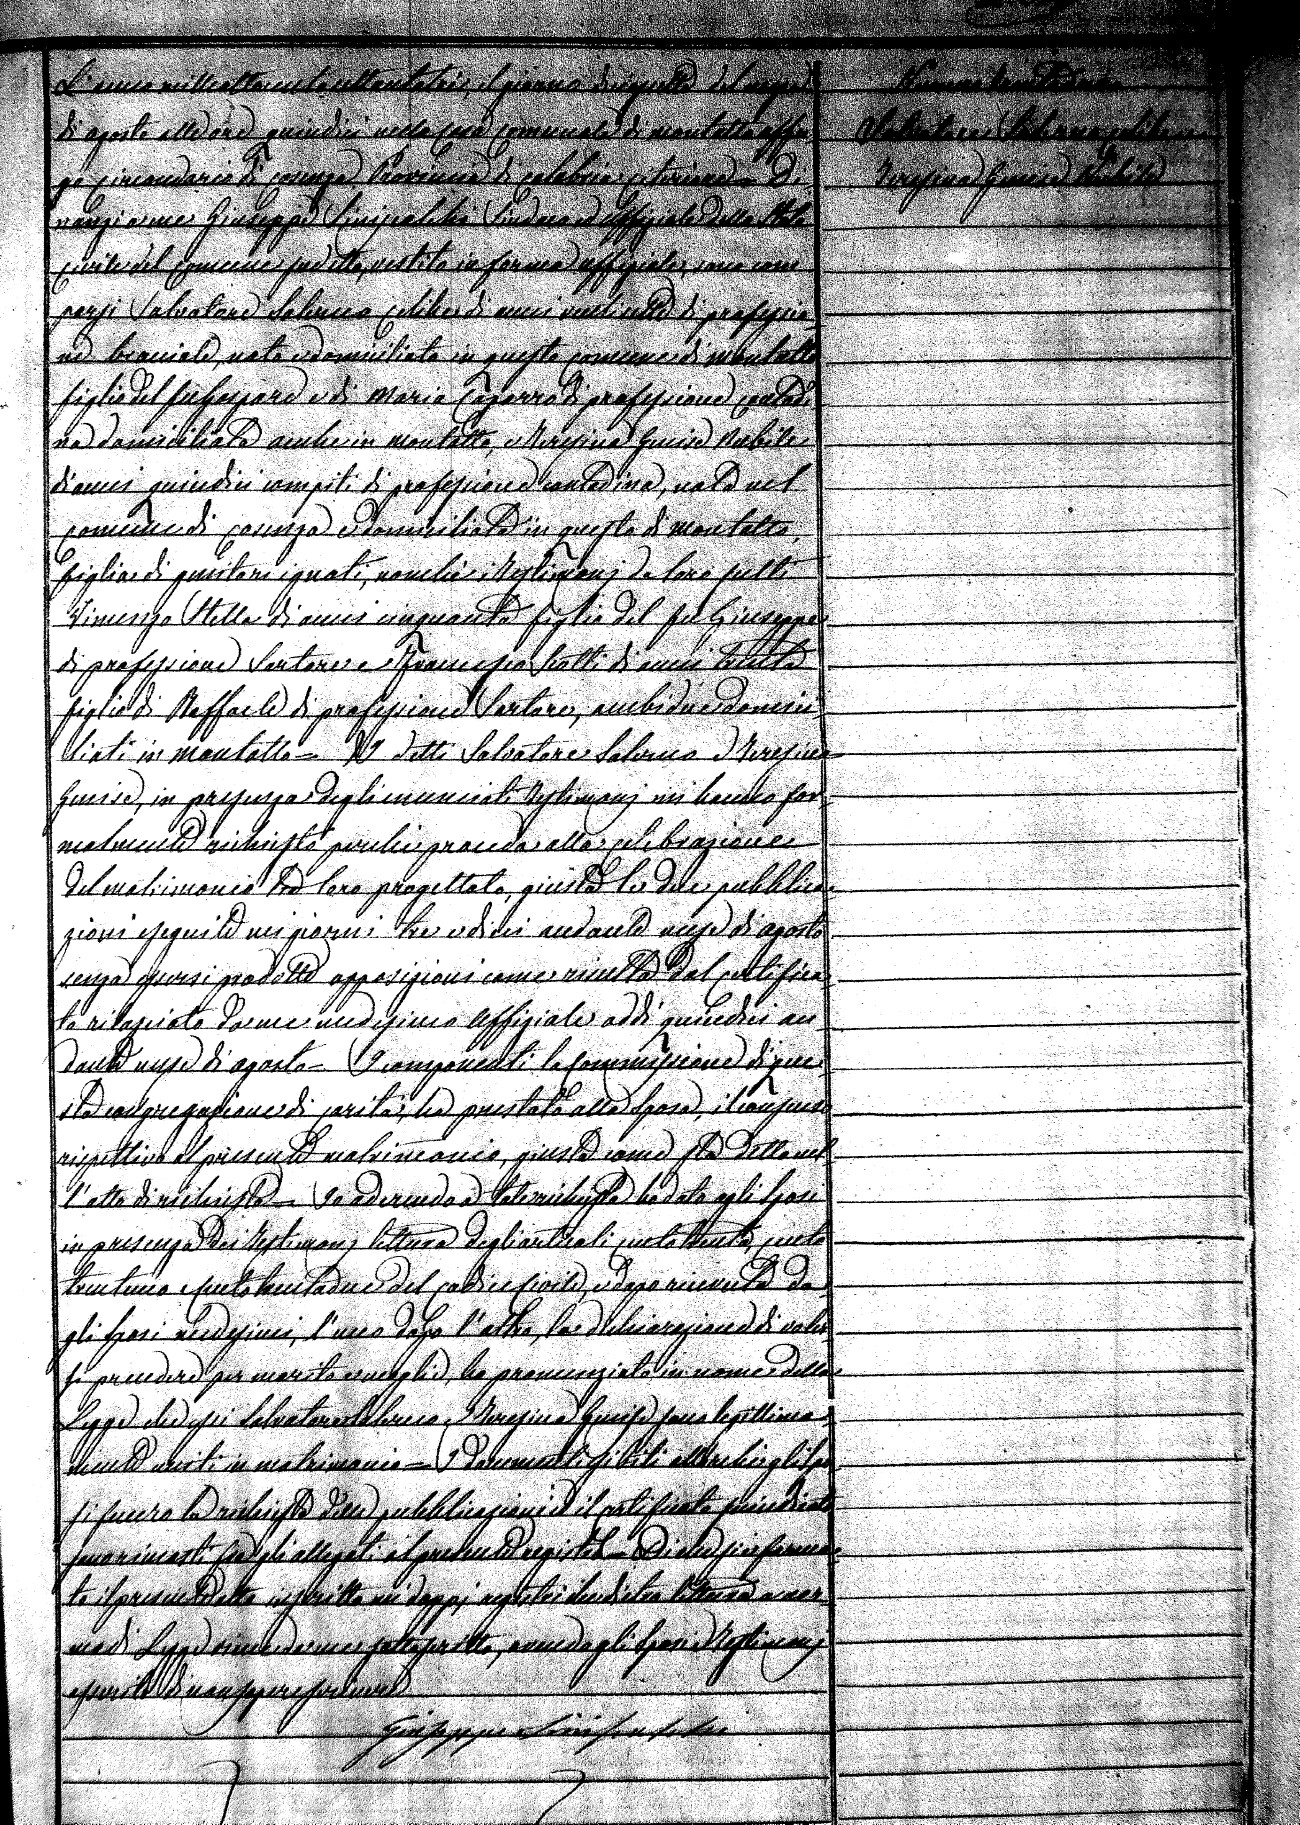 L'anno mille ottocento settantatrè, il giorno diciassette del mese
di agosto alle ore quindici nella casa comunale di Montalto Uffu-
go circondario di Cosenza Provincia di Calabria citeriore = Di-
nanzi a me Giuseppe Sinisealchi Sindaco ed Uffiziale dello Stato
civile del comune sudetto, vestito in forma uffiziale, sono com
parsi Salvatore Salerno celibe di anni ventisette di professio-
ne bracciale, nato e domiciliato in questo comune di Montalto
figlio del fu Gaspare e di Maria Caparro di professione contadi-
na domiciliata anche in Montalto, e Teresina Guise Nubile
di anni quindici compiti di professione contadina, nata nel
comune di Cosenza e domiciliata in questo di Montalto,
figlia di genitori ignoti, nonchè i Testimonj da loro scelti
Vincenzo Stella di anni cinquanta figlio del fu Giuseppe
di professione Sartore e Francesco Scotti di anni trenta
figlio di Raffaele di professione Sartore, ambidue domici
liati in Montalto = I detti Salvatore Salerno e Teresina
Guise, in presenza degli enunciati Testimonj mi hanno for-
malmente richiesto perchè proceda alla celebrazione
del matrimonio tra loro progettato, giusta le due pubblica-
zioni eseguite nei giorni tre e dieci andante mese di agosto
senza essersi prodotte opposizioni come risulta dal certifica-
to rilasciato da me medesimo Uffiziale addì quindici an
dante mese di agosto = I componenti la Commissione di que
sta congregazione di carità, ha prestato alla sposa, il consenso
rispettivo al presente matrimonio, giusta come sta detto nel
l'atto di richiesta = Io aderendo a tale richiesta ho dato agli sposi
in presenza dei Testimonj lettura degli articoli centotrenta, cento
trentuno e centotrentadue del codice civile, e dopo ricevuta da
gli sposi medesimi, l'uno dopo l'altro, la dichiarazione di voler
si prendere per marito e moglie, ho pronunziato in nome della
Legge che essi Salvatore Salerno e Teresina Guise sono legittima-
mente uniti in matrimonio = I documenti esibiti allorchè gli spo
si fecero la richiesta delle pubblicazioni ed il certificato
sono rimasti fra gli allegati al presente registro = Di che si è forma-
to il presente atto inscritto nei doppj registri che di loro lettura a nor-
ma di Legge viene da me sottoscritto, avendo gli sposi e Testimonj
asserito di non sapere scrivere
Giuseppe Sinisealchi
Numero trentadue
Salvatore Salerno celibe
Teresina Guise Nubile